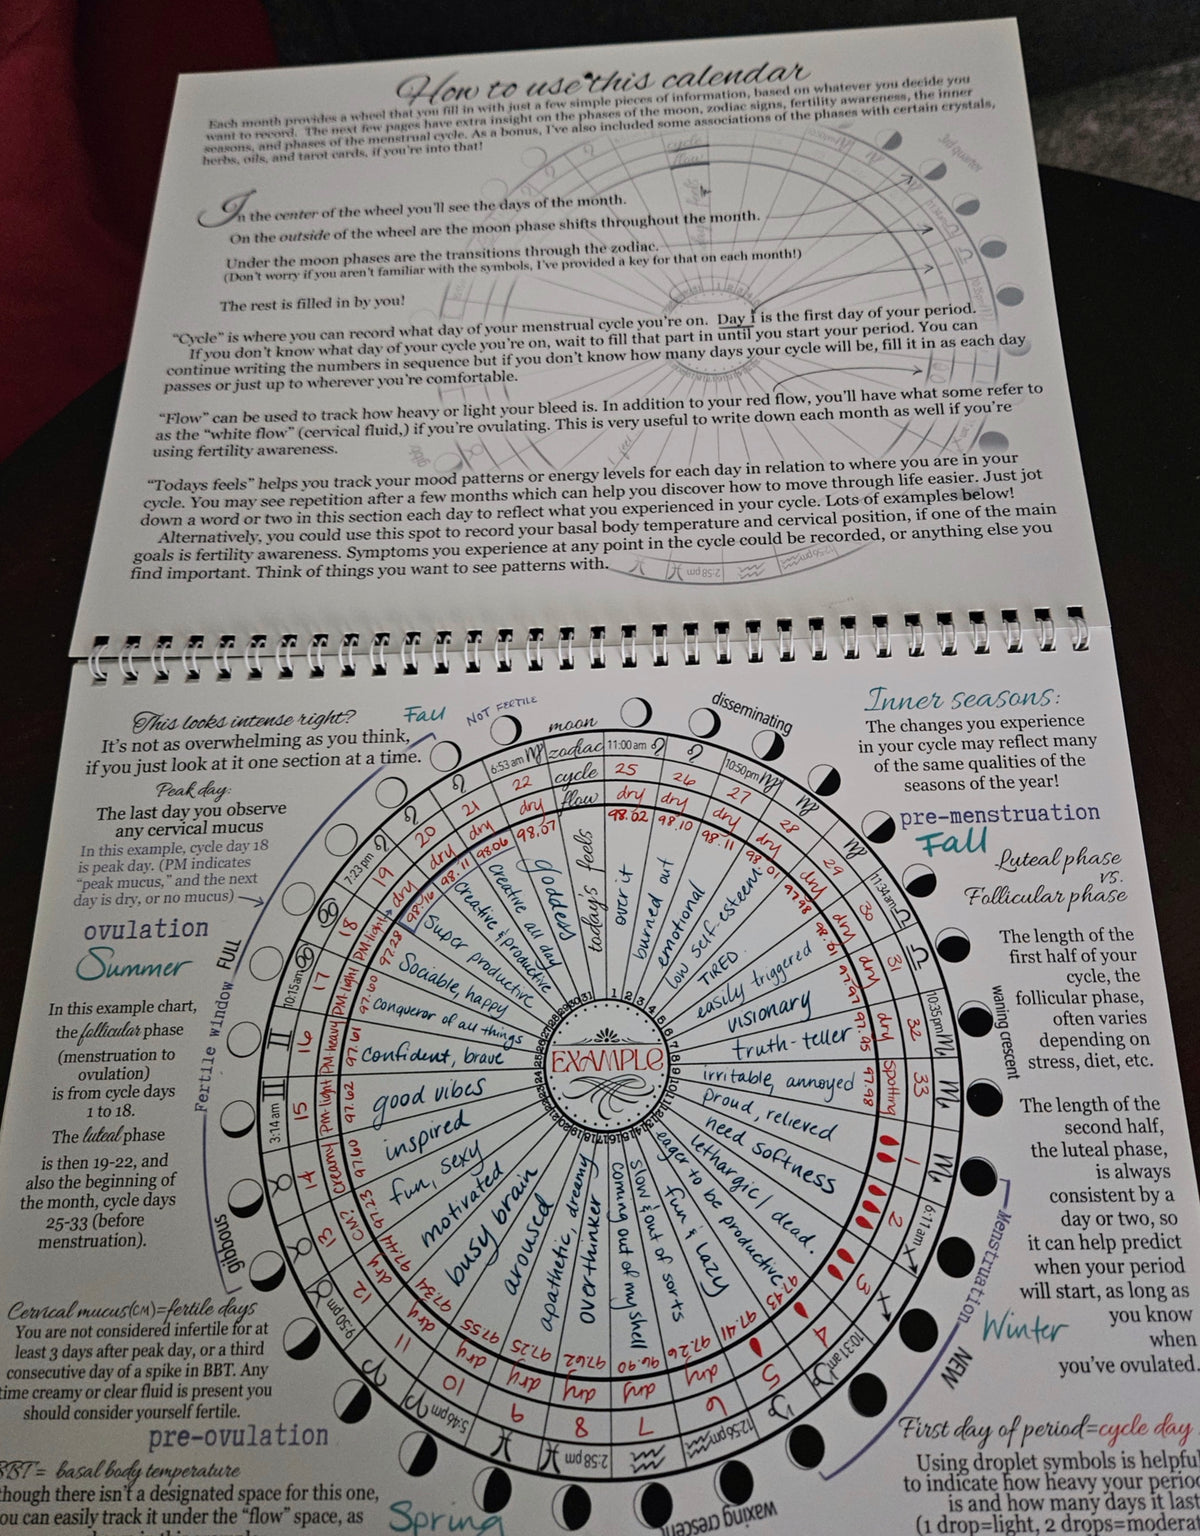 How to use this calendar
Each month provides a wheel that you fill in with just a few simple pieces of information, based on whatever you decide you
want to record. The next few pages have extra insight on the phases of the moon, zodiac signs, fertility awareness, the inner
seasons, and phases of the menstrual cycle. As a bonus, I've also included some associations of the phases with certain crystals,
herbs, oils, and tarot cards, if you're into that!
In the center of the wheel you'll see the days of the month.
On the outside of the wheel are the moon phase shifts throughout the month.
Under the moon phases are the transitions through the zodiac.
(Don't worry if you aren't familiar with the symbols, I've provided a key for that on each month!)
The rest is filled in by you!
"Cycle" is where you can record what day of your menstrual cycle you're on. Day 1 is the first day of your period.
If you don't know what day of your cycle you're on, wait to fill that part in until you start your period. You can
continue writing the numbers in sequence but if you don't know how many days your cycle will be, fill it in as each day
passes or just up to wherever you're comfortable.
"Flow" can be used to track how heavy or light your bleed is. In addition to your red flow, you'll have what some refer to
as the "white flow" (cervical fluid,) if you're ovulating. This is very useful to write down each month as well if you're
using fertility awareness.
"Todays feels" helps you track your mood patterns or energy levels for each day in relation to where you are in your
cycle. You may see repetition after a few months which can help you discover how to move through life easier. Just jot
down a word or two in this section each day to reflect what you experienced in your cycle. Lots of examples below!
Alternatively, you could use this spot to record your basal body temperature and cervical position, if one of the main
goals is fertility awareness. Symptoms you experience at any point in the cycle could be recorded, or anything else you
find important. Think of things you want to see patterns with.
3rd quarter
2:58 pm
12:56pm
This looks intense right?
It's not as overwhelming as you think,
if you just look at it one section at a time.
Peak day:
The last day you observe
any cervical mucus
In this example, cycle day 18
is peak day. (PM indicates
"peak mucus," and the next
day is dry, or no mucus)
ovulation
Summer
In this example chart,
the follicular phase
(menstruation to
ovulation)
is from cycle days
1 to 18.
The luteal phase
is then 19-22, and
also the beginning of
the month, cycle days
25-33 (before
menstruation).
Cervical mucus(CM)=fertile days
You are not considered infertile for at
least 3 days after peak day, or a third
consecutive day of a spike in BBT. Any
time creamy or clear fluid is present you
should consider yourself fertile.
pre-ovulation
BBT= basal body temperature
though there isn't a designated space for this one,
you can easily track it under the "flow" space, as
Spring
Fall
NOT FERTILE
Fertile window
FULL
gibbous
moon
zodiac
cycle
flow
today's feels
disseminating
waning crescent
Menstruation
NEW
waxing crescent
11:00 am
10:50pm
11:34am
10:35pm
6:11 am
10:31 am
12:56pm
2:58 pm
5:46 pm
9:50pm
3:14 am
10:15am
7:23pm
6:53 am
25
26
27
28
29
30
31
32
33
1
2
3
4
5
6
7
8
9
10
11
12
13
14
15
16
17
18
19
20
21
22
dry
dry
dry
dry
dry
dry
dry
dry
Spotting
dry
dry
dry
dry
dry
dry
dry
dry
CM?
Creamy
PM-light
PM-heavy
PM-light
PM-light
dry
dry
dry
dry
98.02
98.10
98.11
98.01
97.98
97.97
97.95
97.98
97.43
97.41
97.26
96.90
97.62
97.25
97.55
97.34
97.44
97.23
97.60
97.62
97.61
97.60
97.28
98.16
98.11
98.06
98.07
over it
burned out
emotional
low self-esteem
TIRED
easily triggered
visionary
truth-teller
irritable, annoyed
proud, relieved
need softness
lethargic / dead.
eager to be productive
fun & lazy
slow & out of sorts
coming out of my shell
overthinker
apathetic, dreamy
aroused
busy brain
motivated
fun, sexy
inspired
good vibes
confident, brave
conqueror of all things
Sociable, happy
Super productive
creative & productive
creative all day
goddess
EXAMPLE
Inner seasons:
The changes you experience
in your cycle may reflect many
of the same qualities of the
seasons of the year!
pre-menstruation
Fall
Luteal phase
vs.
Follicular phase
The length of the
first half of your
cycle, the
follicular phase,
often varies
depending on
stress, diet, etc.
The length of the
second half,
the luteal phase,
is always
consistent by a
day or two, so
it can help predict
when your period
will start, as long as
you know
when
you've ovulated.
Winter
First day of period=cycle day
Using droplet symbols is helpful
to indicate how heavy your period
is and how many days it last
(1 drop=light, 2 drops=moderat